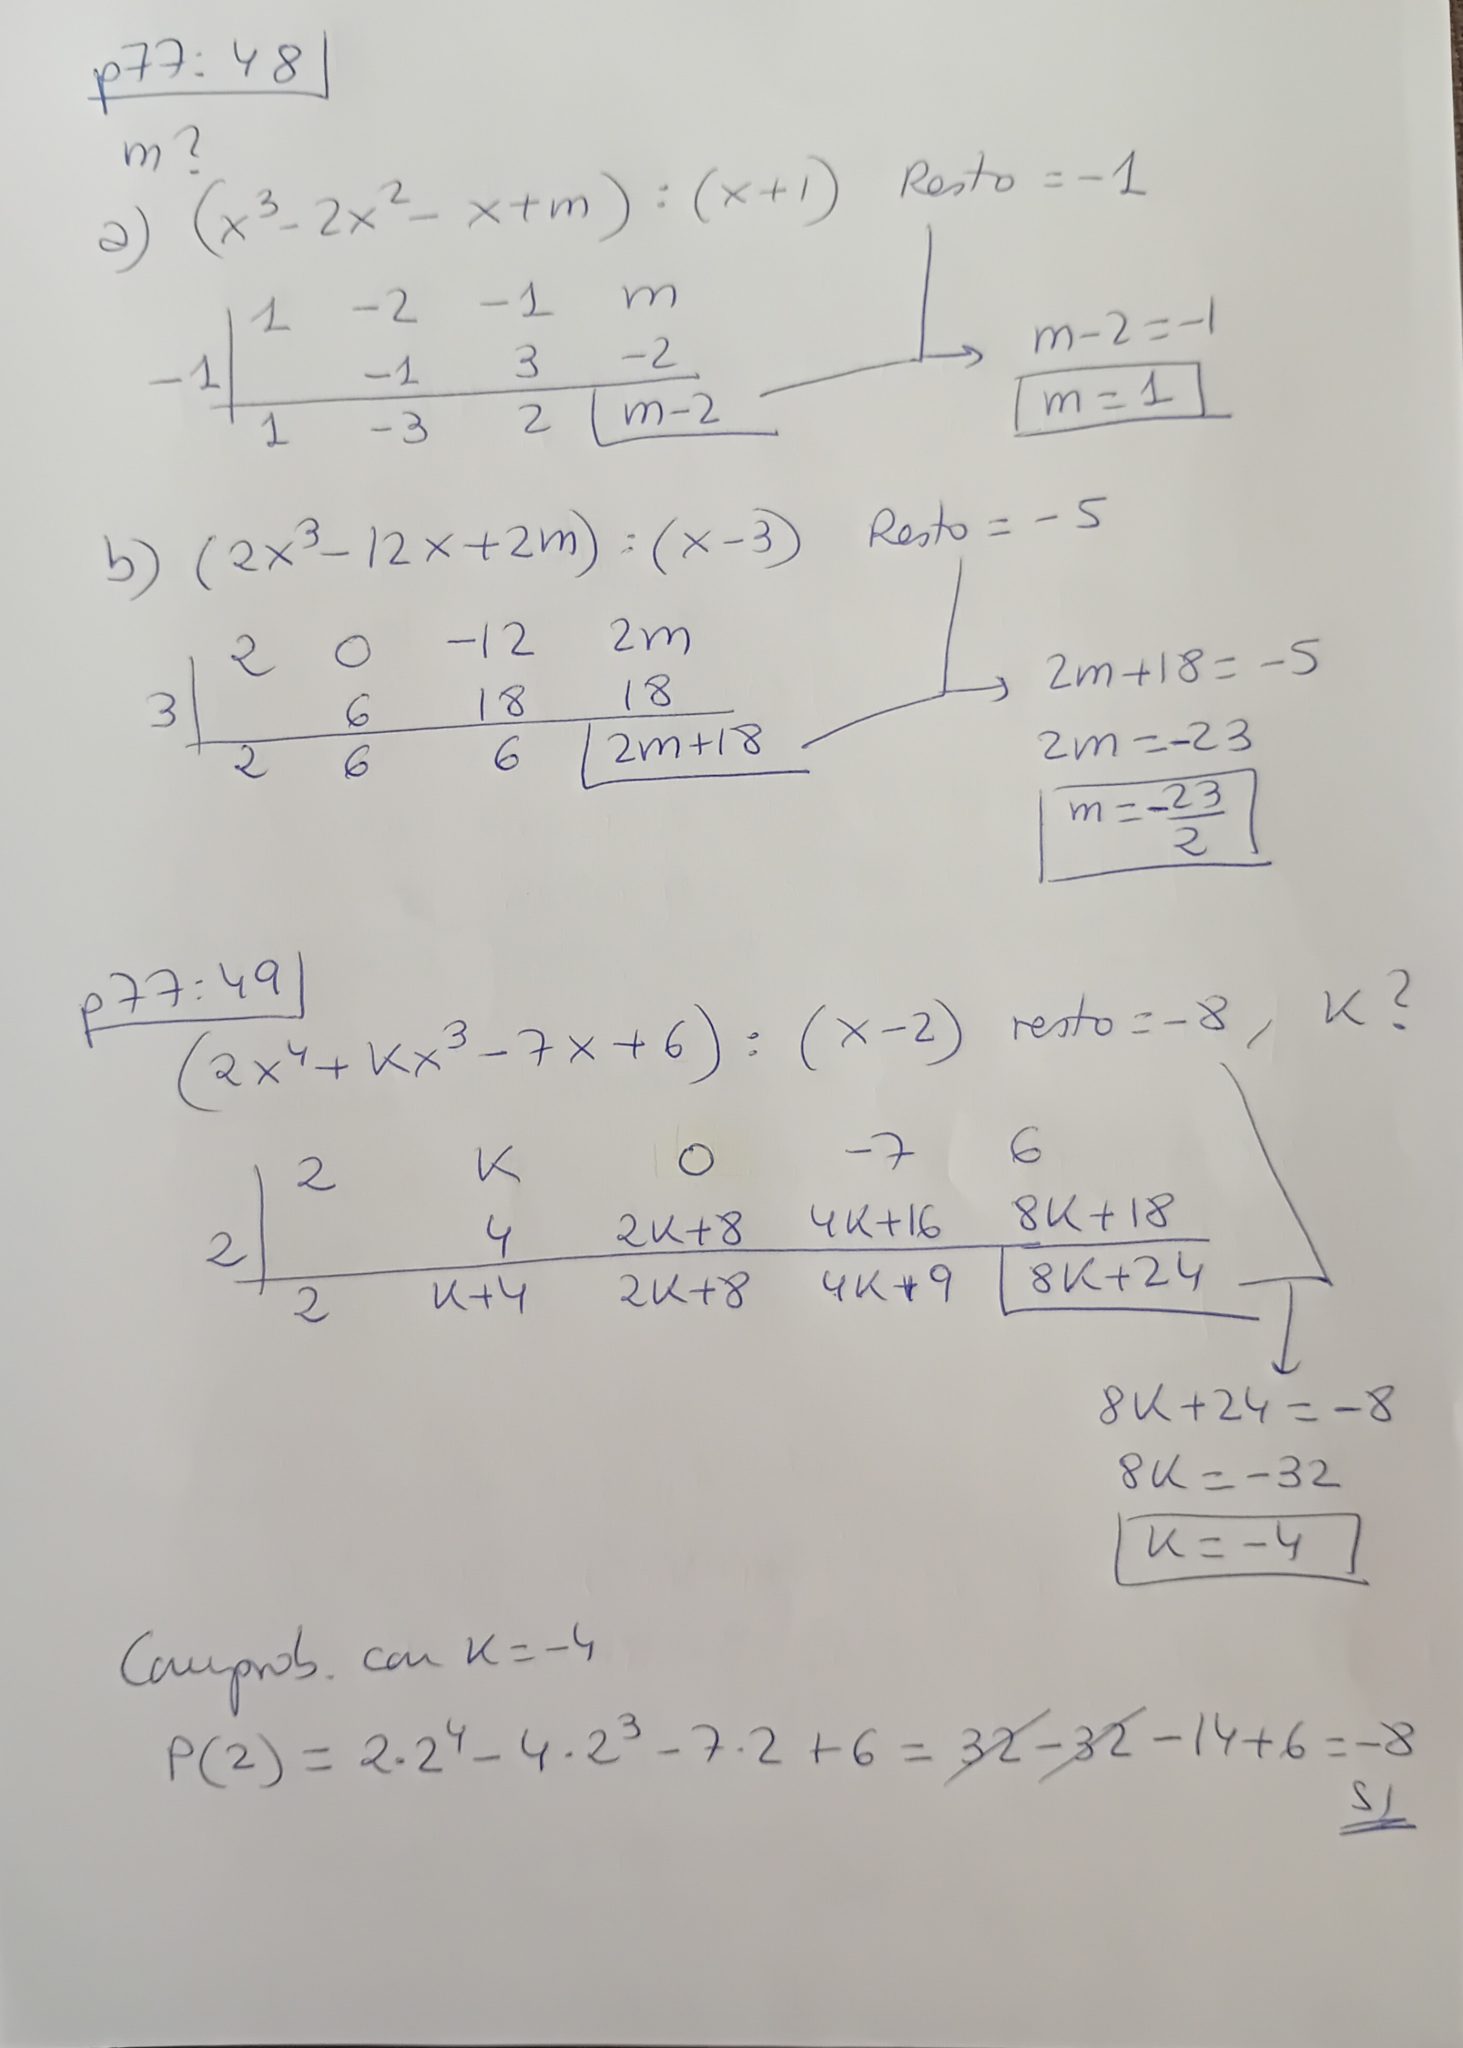 p77: 48
m?
a) (x³ - 2x² - x + m) : (x+1) Resto = -1
1 -2 -1 m
-1 -1 3 -2
1 -3 2 m-2
m-2 = -1
m = 1
b) (2x³ - 12x + 2m) : (x-3) Resto = -5
2 0 -12 2m
3 6 18 18
2 6 6 2m+18
2m+18 = -5
2m = -23
m = -23/2
p77: 49
(2x⁴ + Kx³ - 7x + 6) : (x-2) resto = -8, K?
2 K 0 -7 6
2 4 2K+8 4K+16 8K+18
2 K+4 2K+8 4K+9 8K+24
8K+24 = -8
8K = -32
K = -4
Comprob. con K = -4
P(2) = 2·2⁴ - 4·2³ - 7·2 + 6 = 32 - 32 - 14 + 6 = -8
SÍ